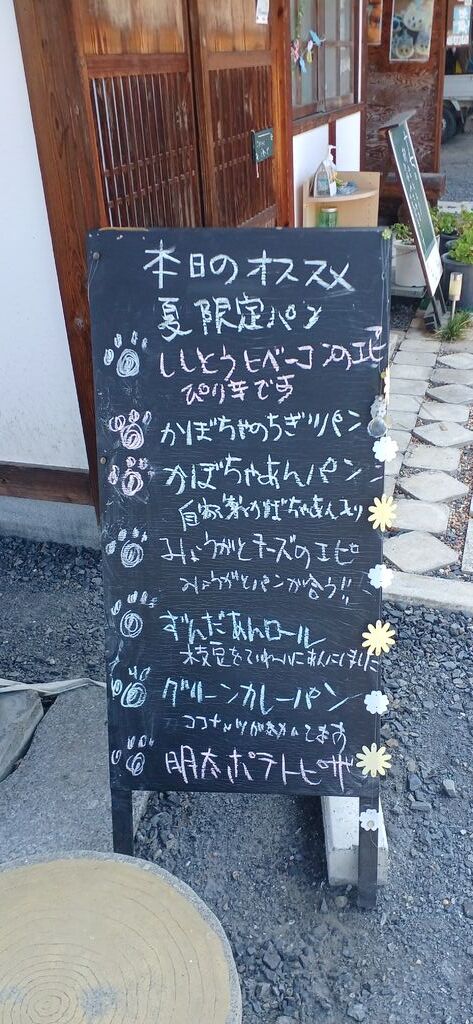 本日のオススメ
夏限定パン
ししとうとベーコンのエピ
ぴり辛です
かぼちゃのちぎりパン
かぼちゃあんパン
自家製かぼちゃあん入り
みょうがとチーズのエピ
みょうがとパンが合う!!
ずんだあんロール
枝豆をていねいにあんにしました
グリーンカレーパン
ココナッツが
てます
明太ポテトピザ